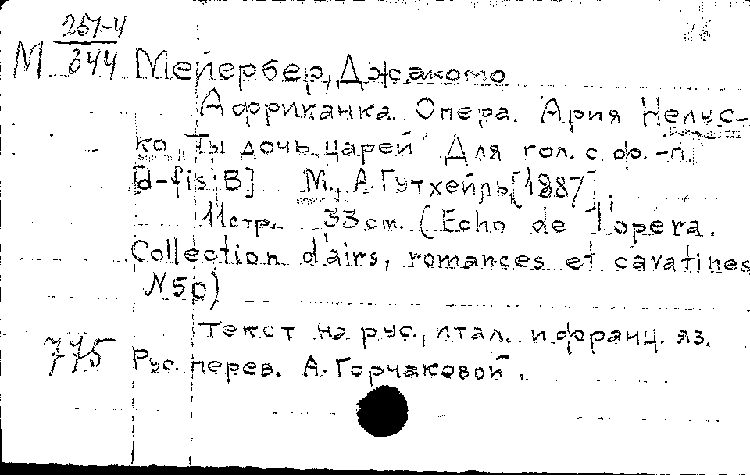 М 251-4/344 Мейербер, Джакомо
Африканка. Опера. Ария Нелус-
ко „Ты дочь царей“ Для гол. с ф.-п.
[d-fis; B] М., А. Гутхейль, [1887].
11 стр. 33 см. (Echo de l'opéra.
Collection d'airs, romances et cavatines
N 50)
Текст на рус., итал. и франц. яз.
775 Рус. перев. А. Горчаковой.